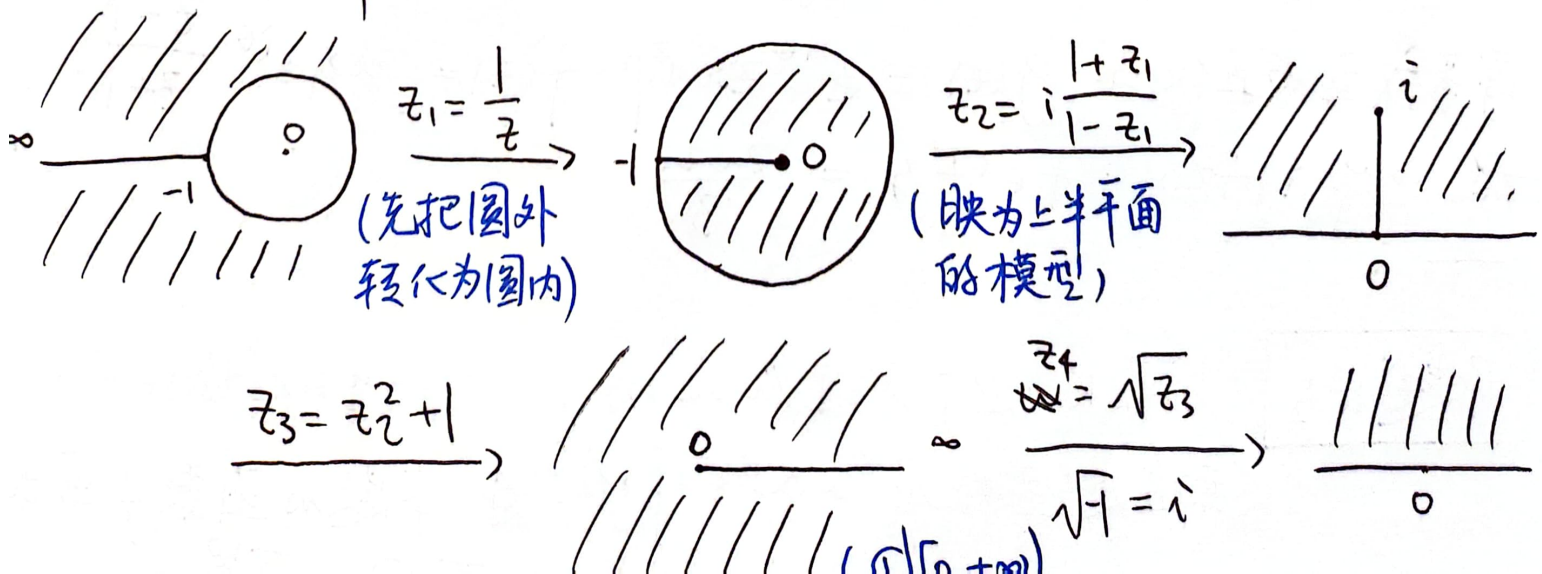 ∞ -1 0
z₁ = 1/z
(先把圆外
转化为圆内)
-1 0
z₂ = i (1+z₁)/(1-z₁)
(映为上半平面
的模型)
i
0
z₃ = z₂² + 1
0 ∞
z₄ = √z₃
√-1 = i
0